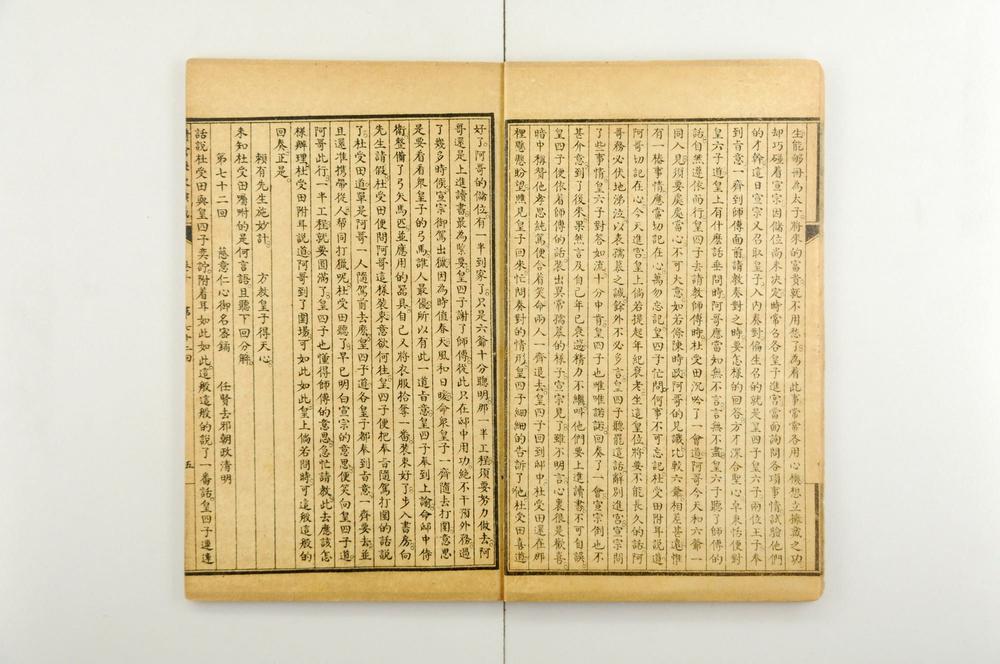 生能够册為太子將來的富貴就不用愁了為着此事常常各用心機想立擁戴之功
却巧碰着宣宗因儲位尚未决定時常召各皇子進宫當面詢問各項事情試驗他們
的才幹這日宣宗又召取皇子入内奏對偏生召的就是皇四子皇六子兩位王子奉
到旨意一齊到師傅面前請教奏對之時要怎樣的回答方才深合聖心卓秉恬便對
皇六子道皇上有什麽話垂問時阿哥應當知無不言言無不盡皇六子聽了師傅的
話自然遵依而行皇四子去請教師傅時杜受田沉吟了一會道阿哥今天和六爺一
同入見須要處處當心不可大意如若條陳時政阿哥的見識比較六爺相差甚遠惟
有一樁事情應當切記在心萬勿忘記皇四子忙問何事不可忘記杜受田附耳說道
阿哥切記在心今天進宫皇上倘若提起年紀衰老坐這皇位將要不能長久的話阿
哥務必伏地涕泣以表孺慕之誠餘外不必多言皇四子聽罷這話辭别進宫宣宗問
了些事情皇六子對答如流十分中肯皇四子也唯唯諾諾回奏了一會宣宗倒也不
甚介意到了後來果然言及自己年已衰邁精力不繼呌他們要上進讀書不可自誤
皇四子便依着師傅的話裝出異常孺慕的樣子宣宗見了雖不明言心裏很是歡喜
暗中稱贊他孝思純篤便含着笑命兩人一齊退去皇四子回到邸中杜受田還在那
裡懸懸盼望瞧見皇子回來忙問奏對的情形皇四子細細的告訴了他杜受田喜道
好了阿哥的儲位有一半到家了只是六爺十分聰明那一半工程須要努力做去阿
哥還是上進讀書最為緊要皇四子謝了師傅從此只在邸中用功絶不干預外務過
了幾多時候宣宗御駕出獵因為時值春天風和日暖命衆皇子一齊隨去打圍意思
是要看看衆皇子的弓馬誰人最優所以有此一道旨意皇四子奉到上諭命邸中侍
衛整備了弓矢馬匹並應用的器具自己又將衣服拾奪一番裝束好了步入書房向
先生請假杜受田便問阿哥這樣裝束意欲何往皇四子便把奉旨隨駕打圍的話說
了杜受田道單是阿哥一人隨駕前去麽皇四子道各皇子都奉到旨意一齊要去並
且還准携帶從人帮同打獵呢杜受田聽了早已明白宣宗的意思便笑向皇四子道
阿哥此行一半工程就要圓滿了皇四子也懂得師傅的意思急忙請教此去應該怎
樣辦理杜受田附耳説道阿哥到了圍場可如此如此皇上倘若問時可這般這般的
回奏正是
賴有先生施妙計 方教皇子得天心
未知杜受田囑咐的是何言語且聽下回分解
第七十二回 慈意仁心御名容鋪 任賢去邪朝政清明
話説杜受田與皇四子奕詝附着耳如此如此這般這般的說了一番話皇四子連連
第七十二回 五